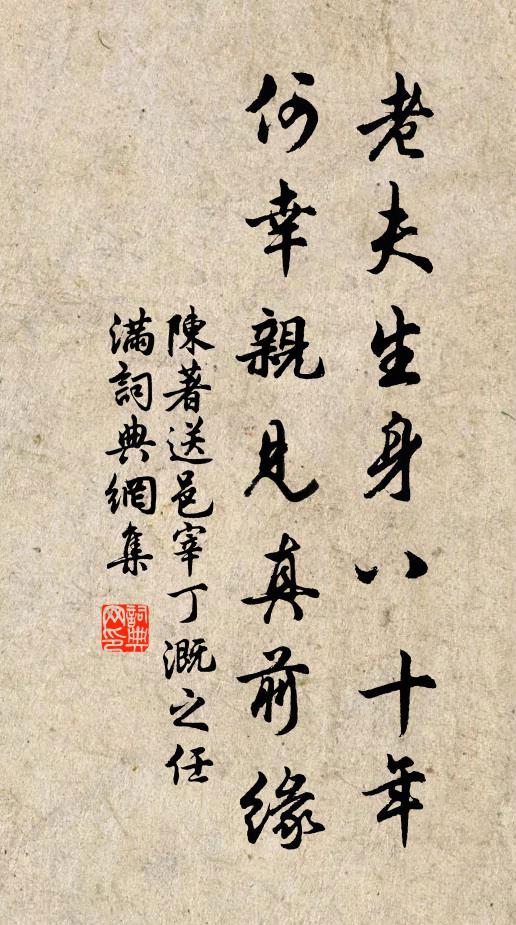 老夫生身八十年
何幸親見真前緣
陳著送邑宰丁溉之任
滿詞典網集
詞典網印